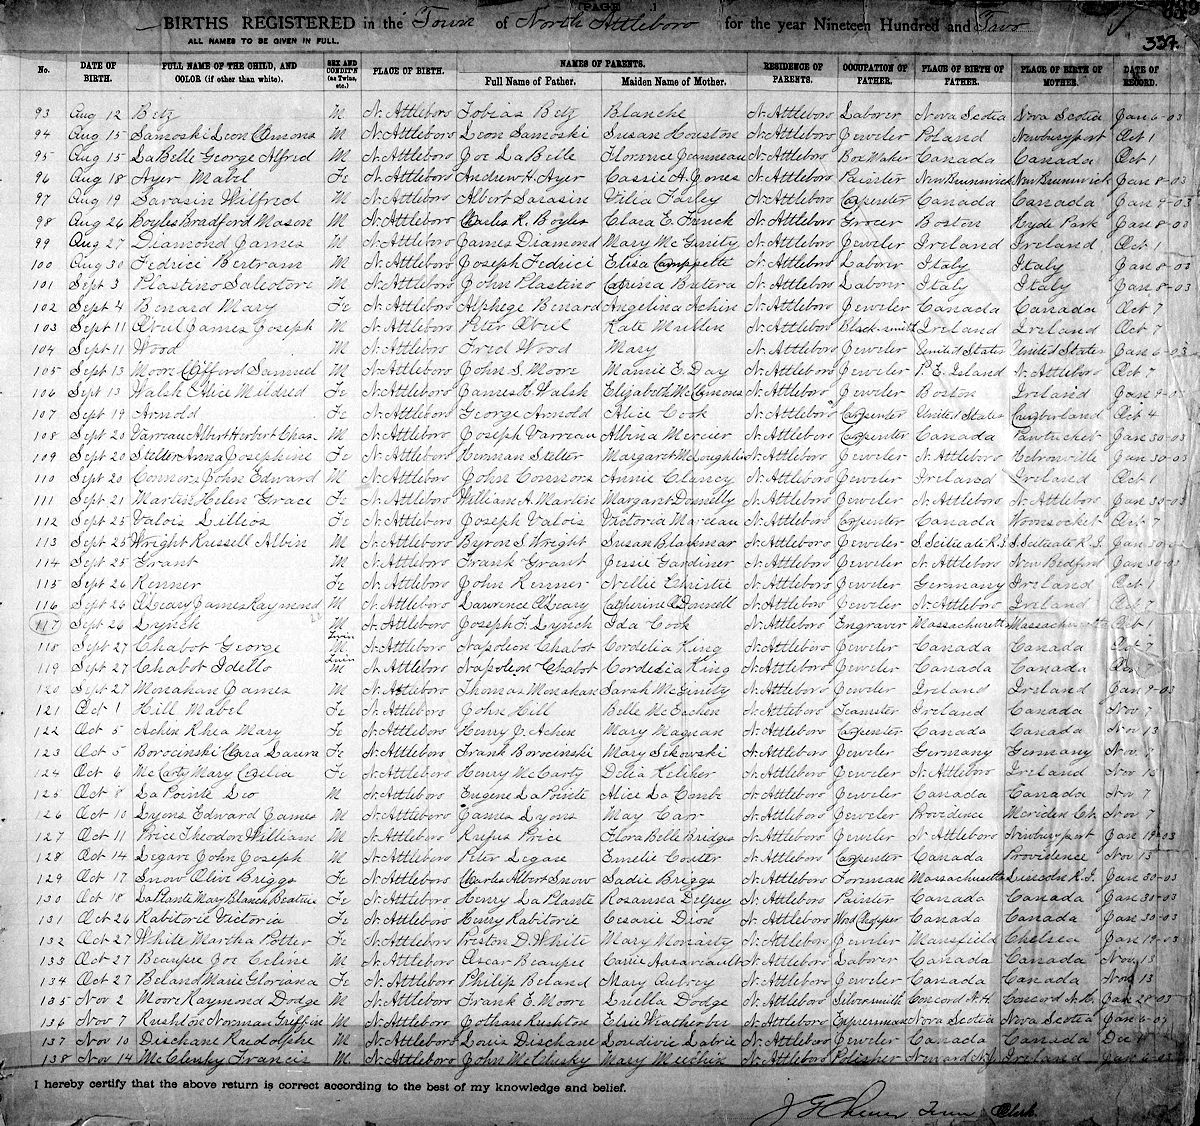 [PAGE 1]
BIRTHS REGISTERED in the Town of North Attleboro for the year Nineteen Hundred and Two
337.
ALL NAMES TO BE GIVEN IN FULL.
No. DATE OF BIRTH. FULL NAME OF THE CHILD, AND COLOR (if other than white). SEX AND CONDIT'N (as Twins, etc.) PLACE OF BIRTH. NAMES OF PARENTS. Full Name of Father. Maiden Name of Mother. RESIDENCE OF PARENTS. OCCUPATION OF FATHER. PLACE OF BIRTH OF FATHER. PLACE OF BIRTH OF MOTHER. DATE OF RECORD.
93 Aug 12 Betz M N. Attleboro Tobias Betz Blanche N. Attleboro Laborer Nova Scotia Nova Scotia Jan 6-03
94 Aug 15 Samoski Leon M N. Attleboro Leon Samoski Susan Houston N. Attleboro Jeweler Poland Newburyport Oct 1
95 Aug 15 LaBelle George Alfred M N. Attleboro Joe LaBelle Florence N. Attleboro Box Maker Canada Canada Oct 1
96 Aug 18 Ayer Mabel Fe N. Attleboro Andrew H. Ayer Cassie A. Jones N. Attleboro Painter New Brunswick New Brunswick Jan 8-03
97 Aug 19 Sarasin Wilfred M N. Attleboro Albert Sarasin Vilia Farley N. Attleboro Carpenter Canada Canada Jan 9-03
98 Aug 26 Boyles Bradford Mason M N. Attleboro Charles R. Boyles Clara E. French N. Attleboro Grocer Boston Hyde Park Jan 8-03
99 Aug 27 Diamond James M N. Attleboro James Diamond Mary McGinity N. Attleboro Jeweler Ireland Ireland Oct 1
100 Aug 30 Fedrici Bertram M N. Attleboro Joseph Fedrici Elisa Camppetti N. Attleboro Laborer Italy Italy Jan 8-03
101 Sept 3 Plastino Salvatore M N. Attleboro John Plastino Catrina Butera N. Attleboro Laborer Italy Italy Jan 8-03
102 Sept 4 Benard Mary Fe N. Attleboro Alphege Benard Angelina Achin N. Attleboro Jeweler Canada Canada Oct 7
103 Sept 11 James Joseph M N. Attleboro Peter Kate N. Attleboro Black-smith Ireland Ireland Oct 7
104 Sept 11 Wood M N. Attleboro Fred Wood Mary N. Attleboro Jeweler United States United States Jan 6-03
105 Sept 13 Moore Clifford Samuel M N. Attleboro John S. Moore Mamie E. Day N. Attleboro Jeweler P. E. Island N. Attleboro Oct 7
106 Sept 13 Walsh Alice Mildred Fe N. Attleboro James H. Walsh Elizabeth McClemons N. Attleboro Jeweler Boston Ireland Jan 9-03
107 Sept 19 Arnold Fe N. Attleboro George Arnold Alice Cook N. Attleboro Carpenter United States Cumberland Oct 4
108 Sept 20 Varreau Albert Herbert Chas. M N. Attleboro Joseph Varreau Albina Mercier N. Attleboro Carpenter Canada Pawtucket Jan 30-03
109 Sept 20 Stelter Anna Josephine Fe N. Attleboro Herman Stelter Margaret McLoughlin N. Attleboro Jeweler N. Attleboro Hebronville Jan 30-03
110 Sept 20 Connors John Edward M N. Attleboro John Connors Annie Clancy N. Attleboro Jeweler Ireland Ireland Oct 1
111 Sept 21 Martin Helen Grace Fe N. Attleboro William A. Martin Margaret Donnelly N. Attleboro Jeweler N. Attleboro N. Attleboro Jan 30-03
112 Sept 25 Valois Fe N. Attleboro Joseph Valois Victoria N. Attleboro Carpenter Canada Woonsocket Oct 7
113 Sept 25 Wright Russell Albin M N. Attleboro Byron S. Wright Susan Blackmar N. Attleboro Jeweler S. Scituate R.I. S. Scituate R.I. Jan 30-03
114 Sept 25 Grant M N. Attleboro Frank Grant Jessie Gardiner N. Attleboro Jeweler N. Attleboro New Bedford Jan 30-03
115 Sept 26 Renner Fe N. Attleboro John Renner Nellie Christie N. Attleboro Jeweler Germany Ireland Oct 1
116 Sept 26 O'Leary James Raymond M N. Attleboro Lawrence O'Leary Catherine O'Donnell N. Attleboro Jeweler N. Attleboro Ireland Oct 7
117 Sept 26 Lynch M N. Attleboro Joseph F. Lynch Ida Cook N. Attleboro Engraver Massachusetts Massachusetts Oct 1
118 Sept 27 Chabot George Twin M N. Attleboro Napoleon Chabot Cordelia King N. Attleboro Jeweler Canada Canada Oct 7
119 Sept 27 Chabot Idella Twin Fe N. Attleboro Napoleon Chabot Cordelia King N. Attleboro Jeweler Canada Canada Oct
120 Sept 27 Monahan James M N. Attleboro Thomas Monahan Sarah McGinity N. Attleboro Jeweler Ireland Ireland Jan 9-03
121 Oct 1 Hill Mabel Fe N. Attleboro John Hill Belle McEachen N. Attleboro Teamster Ireland Canada Nov 7
122 Oct 5 Achin Rhea Mary Fe N. Attleboro Henry J. Achin Mary Magnan N. Attleboro Carpenter Canada Canada Nov 13
123 Oct 5 Borocinski Clara Laura Fe N. Attleboro Frank Borocinski Mary Sikowski N. Attleboro Jeweler Germany Germany Nov 3
124 Oct 6 McCarty Mary Celia Fe N. Attleboro Henry McCarty Delia Keliher N. Attleboro Jeweler N. Attleboro Ireland Nov 15
125 Oct 8 La Pointe Leo M N. Attleboro Eugene La Pointe Alice La Combe N. Attleboro Jeweler Canada Canada Nov 7
126 Oct 10 Lyons Edward James M N. Attleboro James Lyons May Carr N. Attleboro Jeweler Providence Meriden Ct. Nov 7
127 Oct 11 Price Theodore William M N. Attleboro Rufus Price Flora Belle Bridges N. Attleboro Jeweler N. Attleboro Newburyport Jan 19-03
128 Oct 14 Legare John Joseph M N. Attleboro Peter Legare Emelie N. Attleboro Carpenter Canada Providence Nov 13
129 Oct 17 Snow Olive Briggs Fe N. Attleboro Charles Albert Snow Sadie Briggs N. Attleboro Forman Massachusetts Lincoln R.I. Jan 30-03
130 Oct 18 LaPlante May Blanch Beatrice Fe N. Attleboro Henry LaPlante Rosanna N. Attleboro Painter Canada Canada Jan 30-03
131 Oct 26 Rabitorie Victoria Fe N. Attleboro Henry Rabitorie Cesarie N. Attleboro Wood Chopper Canada Canada Jan 30-03
132 Oct 27 White Martha Potter Fe N. Attleboro Preston D. White Mary Moriarty N. Attleboro Jeweler Mansfield Chelsea Jan 19-03
133 Oct 27 Beaupre Joe Celine M N. Attleboro Oscar Beaupre Carrie N. Attleboro Laborer Canada Canada Nov 13
134 Oct 27 Beland Marie Gloriana Fe N. Attleboro Philip Beland Mary Aubrey N. Attleboro Jeweler Canada Canada Nov 13
135 Nov 2 Moore Raymond Dodge M N. Attleboro Frank E. Moore Luella Dodge N. Attleboro Silversmith Concord N.H. Concord N.H. Jan 28-03
136 Nov 7 Rushton Norman Griffin M N. Attleboro Jotham Rushton Elsie Weatherbee N. Attleboro Expressman Nova Scotia Nova Scotia Jan 6-03
137 Nov 10 Dischane Rudolphe M N. Attleboro Louis Dischane Loudivie Labrie N. Attleboro Jeweler Canada Canada Dec
138 Nov 14 McClusky Francis M N. Attleboro John McClusky Mary N. Attleboro Polisher Newark N.J. Ireland Jan
I hereby certify that the above return is correct according to the best of my knowledge and belief.
Town Clerk.